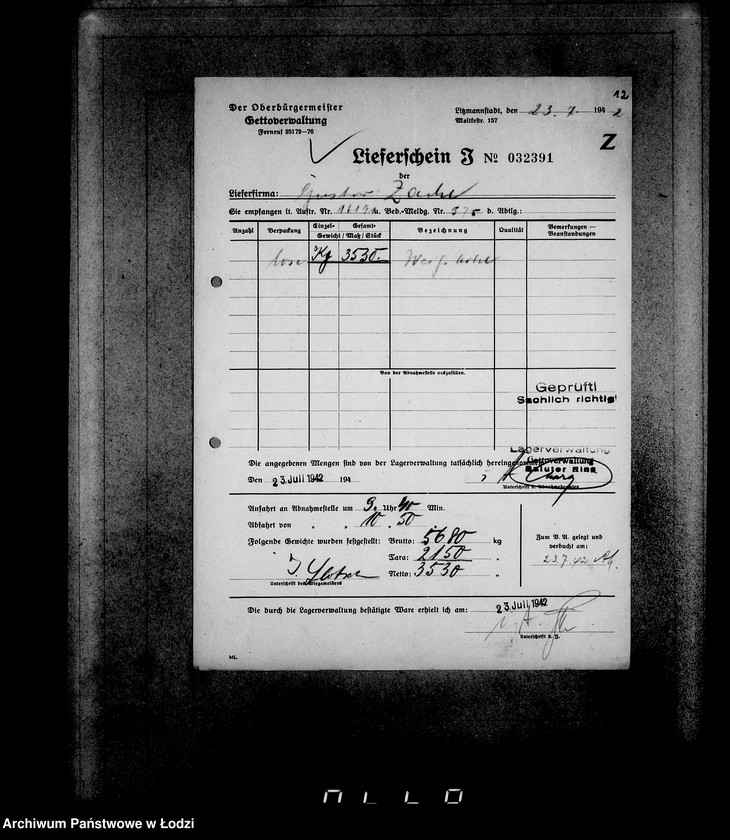 12
Der Oberbürgermeister
Gettoverwaltung
Fernruf 25172—76
Litzmannstadt, den 23. 7. 1942
Moltkestr. 157
Z
Lieferschein J № 032391
der
Lieferfirma: Gustav Zachel
Sie empfangen lt. Auftr. Nr. u. Bed.-Meldg. Nr. 575 d. Abtlg.:
Anzahl Verpackung Einzel- Gesamt- Gewicht / Maß / Stück Bezeichnung Qualität Bemerkungen — Beanstandungen
lose Kg 3530.-
Von der Abnahmestelle auszufüllen.
Geprüft!
Sachlich richtig!
Lagerverwaltung
Die angegebenen Mengen sind von der Lagerverwaltung tatsächlich
Gettoverwaltung
Baluter Ring
Den 23. Juli 1942 194
Unterschrift d. Abnahmebeamten
Anfahrt an Abnahmestelle um 9. Uhr 40 Min.
Abfahrt von " " 10 " 50 "
Folgende Gewichte wurden festgestellt: Brutto: 5680 kg
Tara: 2150 "
Netto: 3530 "
Unterschrift des Wiegemeisters
Zum B. A. gelegt und
verbucht am:
23.7.42
Die durch die Lagerverwaltung bestätigte Ware erhielt ich am: 23. Juli 1942
Unterschrift
ML.
Archiwum Państwowe w Łodzi